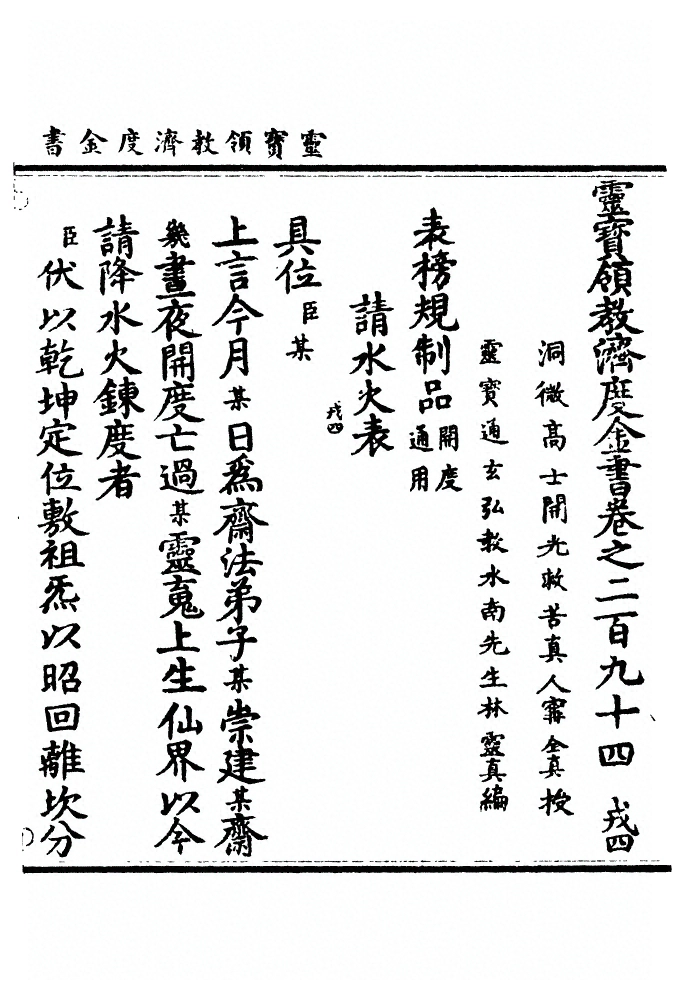 靈寶領教濟度金書
靈寶領教濟度金書卷之二百九十四 戎四
洞微高士開光救苦真人甯全真授
靈寶通玄弘教水南先生林靈真編
表榜規制品 開度通用
請水火表
戎四
具位臣某
上言今月某日爲齋法弟子某崇建某齋
幾晝夜開度亡過某靈䰟上生仙界以今
請降水火鍊度者
臣伏以乾坤定位敷祖炁以昭回離坎分